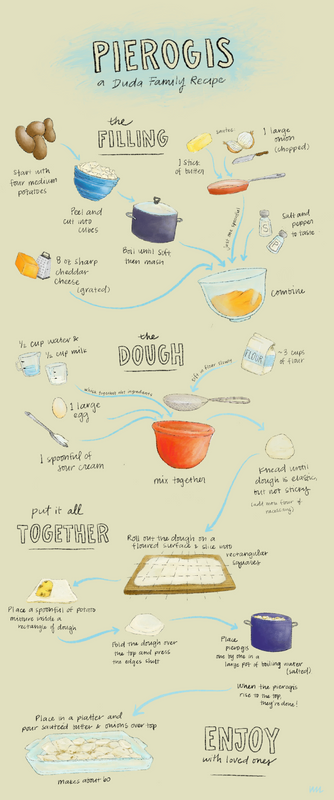 PIEROGIS
a Duda Family Recipe
the
FILLING
Start with
four medium
potatoes
Peel and
cut into
cubes
Boil until soft,
then mash
8 oz sharp
cheddar
cheese
(grated)
1 stick
of butter
sautée
1 large
onion
(chopped)
Salt and
pepper
to taste
combine
the
DOUGH
½ cup water &
½ cup milk
1 large
egg
1 spoonful of
sour cream
whisk previous wet ingredients
sift in flour slowly
~3 cups
of flour
mix together
Knead until
dough is elastic,
but not sticky
(add more flour if
necessary)
put it all
TOGETHER
Roll out the dough on a
floured surface & slice into
rectangular
squares
Place a spoonful of potato
mixture inside a
rectangle of dough
Fold the dough over
the top and press
the edges shut
Place
pierogis
one by one in a
large pot of boiling water
(salted)
When the pierogis
rise to the top,
they're done!
Place in a platter and
pour sautéed butter & onions over top
makes about 60
ENJOY
with loved ones